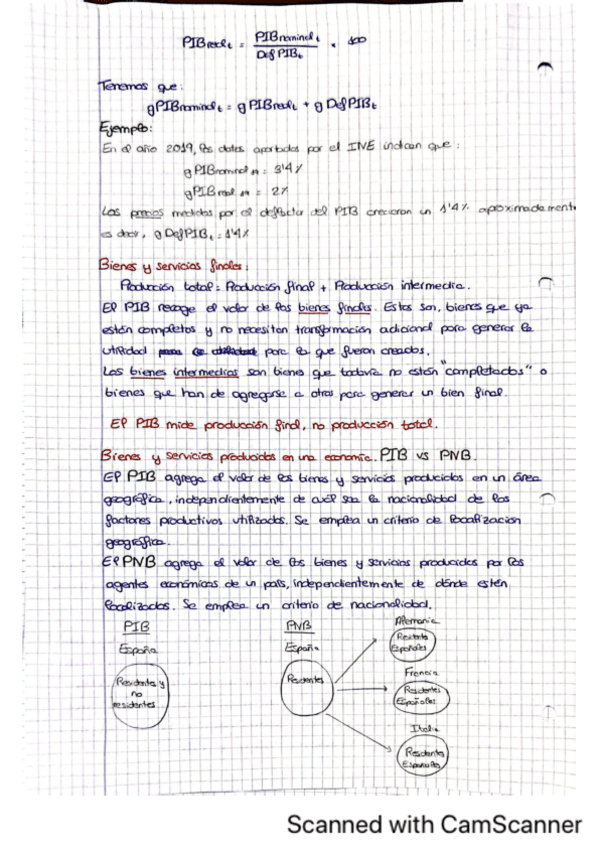 PIBreal t = PIBnominal t / Def PIB t × 100
Tenemos que:
gPIBnominal t = gPIBreal t + g DefPIB t
Ejemplo:
En el año 2019, los datos aportados por el INE indican que:
gPIBnominal 19 = 3'4%
gPIBreal 19 = 2%
Los precios medidos por el deflactor del PIB crecieron un 1'4% aproximadament
es decir, g DefPIB t = 1'4%
Bienes y servicios finales:
Producción total = Producción final + Producción intermedia.
El PIB recoge el valor de los bienes finales. Estos son, bienes que ya
están completos y no necesitan transformación adicional para generar la
utilidad para la que fueron creados.
Los bienes intermedios son bienes que todavía no están "completados" o
bienes que han de agregarse a otros para generar un bien final.
El PIB mide producción final, no producción total.
Bienes y servicios producidos en una economía. PIB vs PNB.
El PIB agrega el valor de los bienes y servicios producidos en un área
geográfica, independientemente de cuál sea la nacionalidad de los
factores productivos utilizados. Se emplea un criterio de localización
geográfica.
El PNB agrega el valor de los bienes y servicios producidos por los
agentes económicos de un país, independientemente de dónde estén
localizados. Se emplea un criterio de nacionalidad.
PIB
España
Residentes y
no
residentes
PNB
España
Residentes
Alemania
Residentes
Españoles
Francia
Residentes
Españoles
Italia
Residentes
Españoles
Scanned with CamScanner